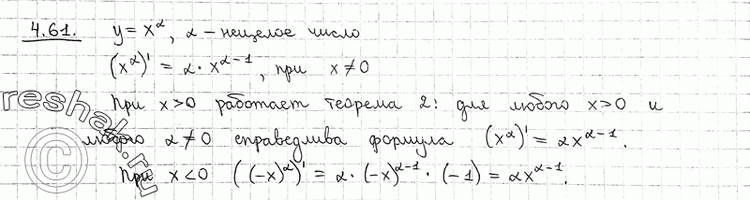 4.61. y = x^α, α – нецелое число
(x^α)' = α · x^(α-1), при x ≠ 0
При x > 0 работает теорема 2: для любого x > 0 и
любого α ≠ 0 справедлива формула (x^α)' = αx^(α-1).
При x < 0 ((-x)^α)' = α · (-x)^(α-1) · (-1) = αx^(α-1).
reshak.ru
©